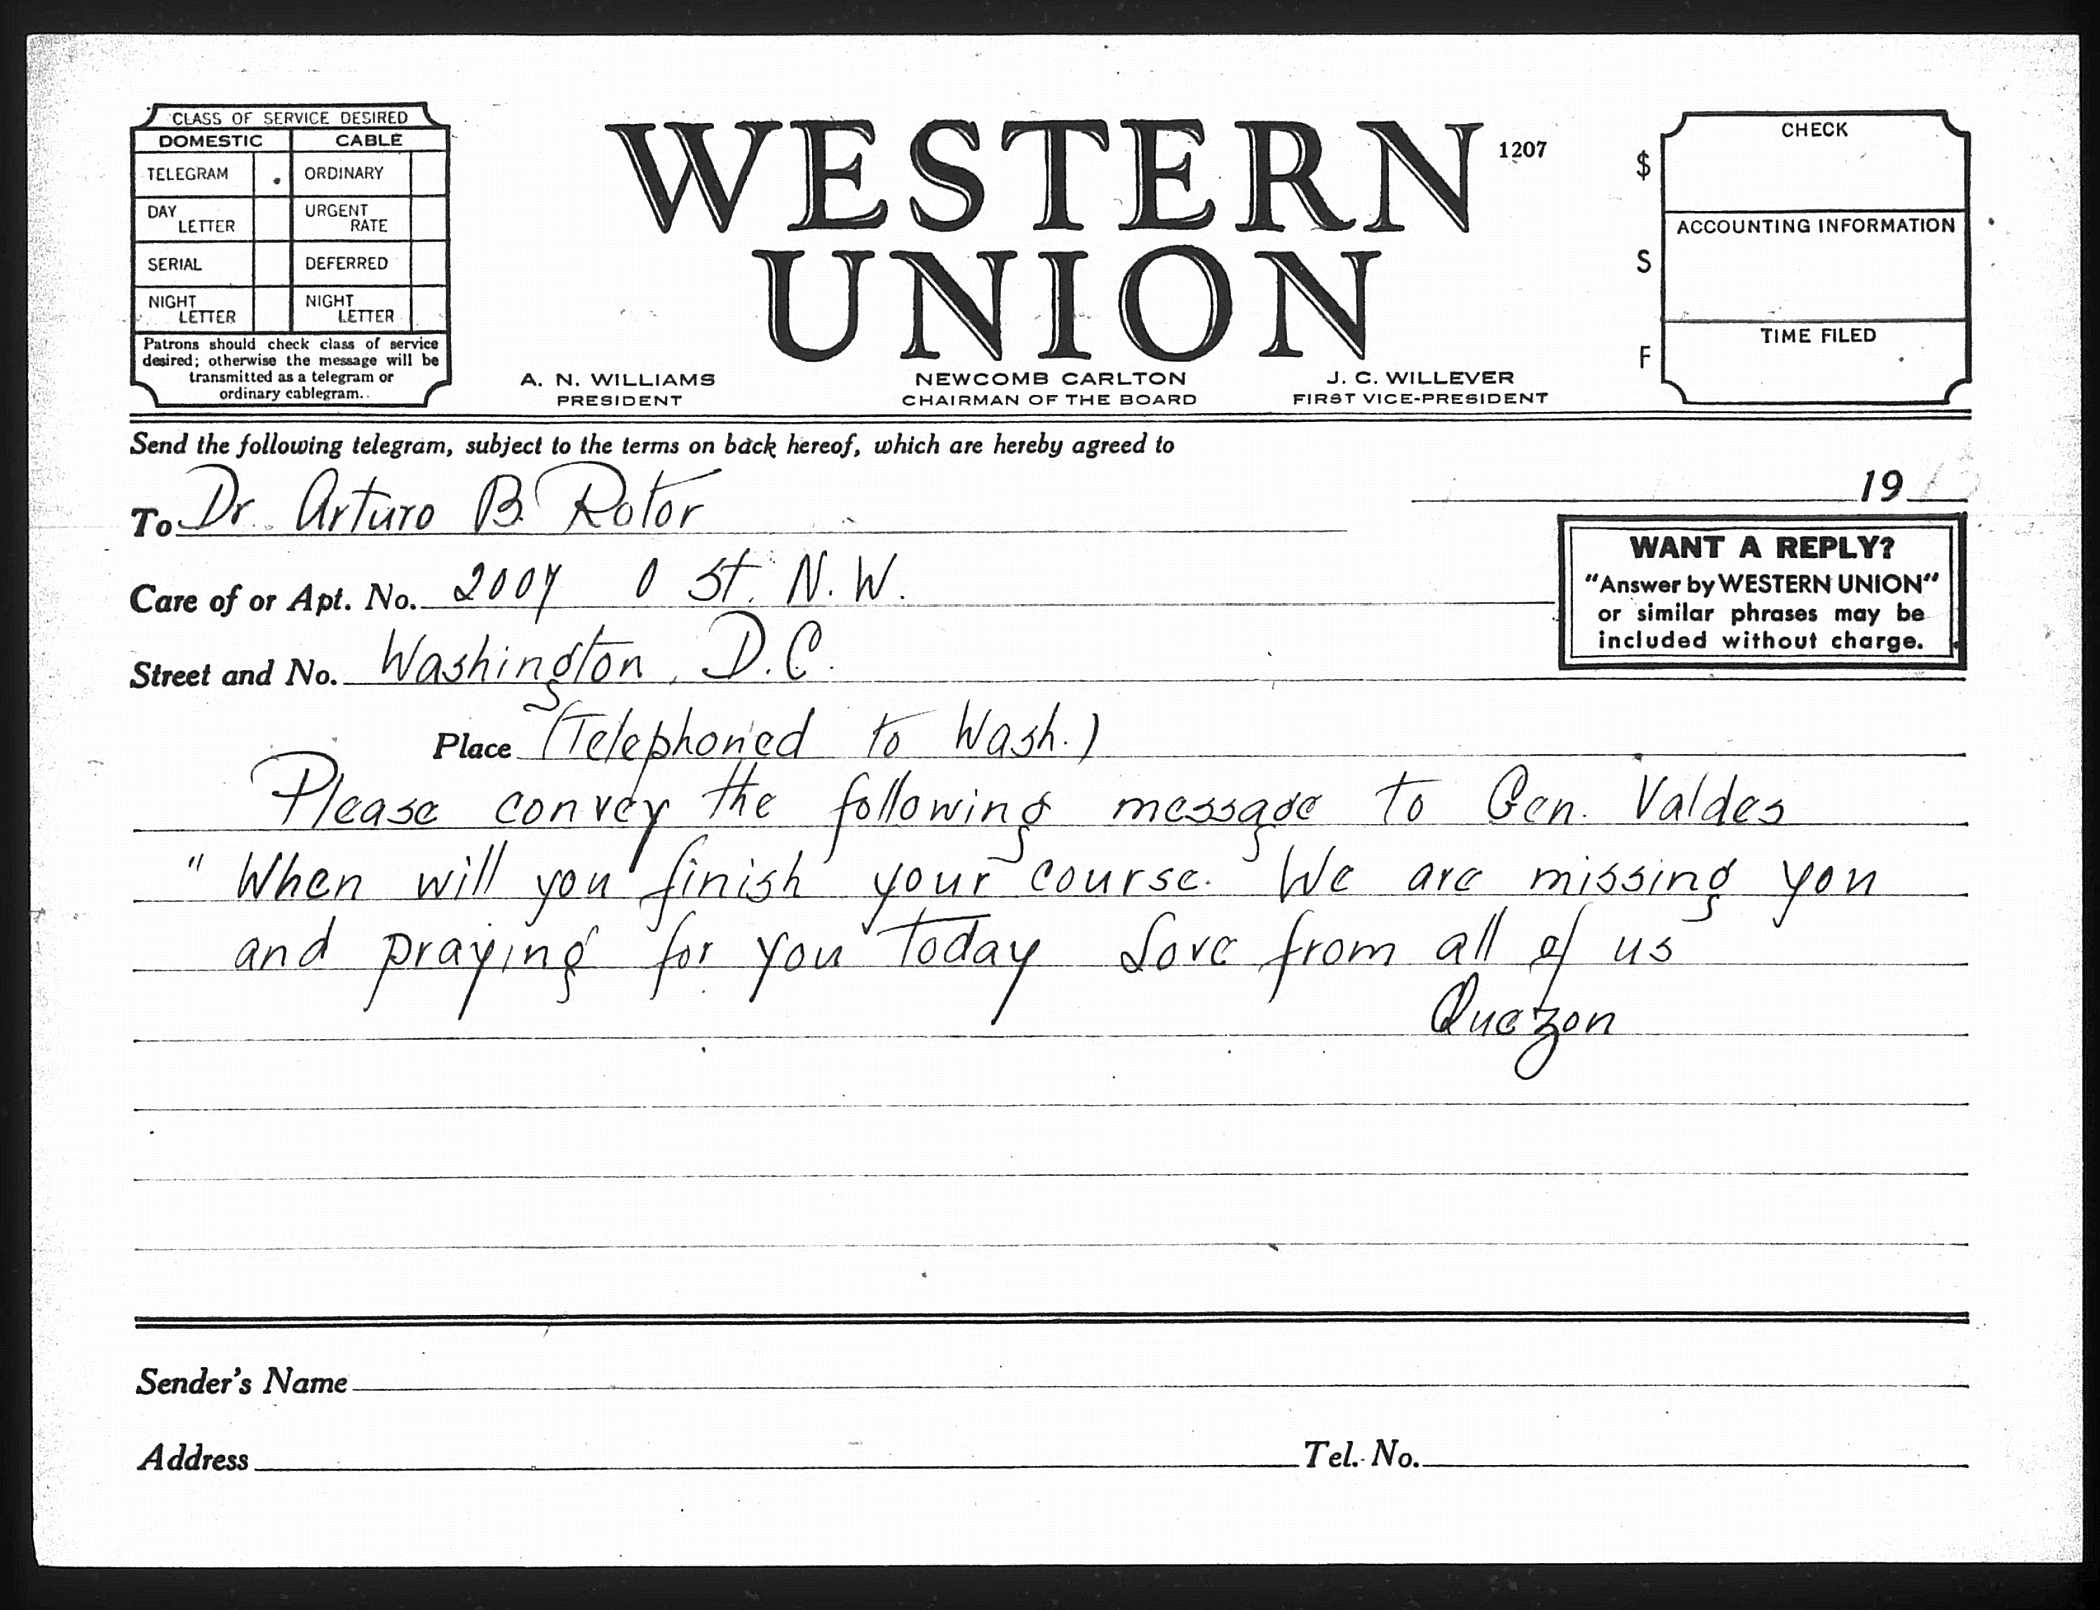 CLASS OF SERVICE DESIRED
DOMESTIC CABLE
TELEGRAM ORDINARY
DAY LETTER URGENT RATE
SERIAL DEFERRED
NIGHT LETTER NIGHT LETTER
Patrons should check class of service
desired; otherwise the message will be
transmitted as a telegram or
ordinary cablegram.
WESTERN
UNION
1207
A. N. WILLIAMS
PRESIDENT
NEWCOMB CARLTON
CHAIRMAN OF THE BOARD
J. C. WILLEVER
FIRST VICE-PRESIDENT
$
S
F
CHECK
ACCOUNTING INFORMATION
TIME FILED
Send the following telegram, subject to the terms on back hereof, which are hereby agreed to
19
To Dr. Arturo B. Rotor
Care of or Apt. No. 2007 O St. N.W.
Street and No. Washington, D.C.
Place (Telephoned to Wash.)
WANT A REPLY?
"Answer by WESTERN UNION"
or similar phrases may be
included without charge.
Please convey the following message to Gen. Valdes
"When will you finish your course. We are missing you
and praying for you today Love from all of us
Quezon
Sender's Name
Address Tel. No.